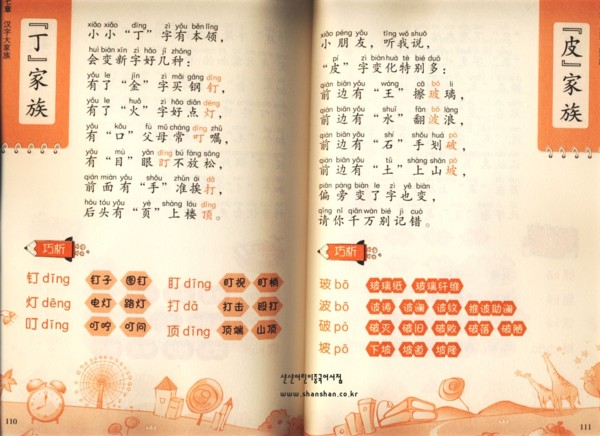 七章 汉字大家族
『丁』家族
xiǎo xiǎo dīng zì yǒu běn lǐng
小小“丁”字有本领，
huì biàn xīn zì hǎo jǐ zhǒng
会变新字好几种：
yǒu le jīn zì mǎi gāng dīng
有了“金”字买钢钉，
yǒu le huǒ zì hǎo diǎn dēng
有了“火”字好点灯，
yǒu kǒu fù mǔ cháng dīng zhǔ
有“口”父母常叮嘱，
yǒu mù yǎn dīng bú fàng sōng
有“目”眼盯不放松，
qián miàn yǒu shǒu zhǔn āi dǎ
前面有“手”准挨打，
hòu tóu yǒu yè shàng lóu dǐng
后头有“页”上楼顶。
巧析
钉 dīng 钉子 图钉
灯 dēng 电灯 路灯
叮 dīng 叮咛 叮问
盯 dīng 盯视 盯梢
打 dǎ 打击 殴打
顶 dǐng 顶端 山顶
110
『皮』家族
xiǎo péng yǒu tīng wǒ shuō
小朋友，听我说，
pí zì biàn huà tè bié duō
“皮”字变化特别多：
qián biān yǒu wáng cā bō li
前边有“王”擦玻璃，
qián biān yǒu shuǐ fān bō làng
前边有“水”翻波浪，
qián biān yǒu shí shǒu huá pò
前边有“石”手划破，
qián biān yǒu tǔ shàng shān pō
前边有“土”上山坡，
piān páng biàn le zì yě biàn
偏旁变了字也变，
qǐng nǐ qiān wàn bié jì cuò
请你千万别记错。
巧析
玻 bō 玻璃纸 玻璃纤维
波 bō 波涛 波澜 波纹 推波助澜
破 pò 破灭 破旧 破败 破落 破陋
坡 pō 下坡 坡道
111
산산어린이중국어서점
www.shanshan.co.kr